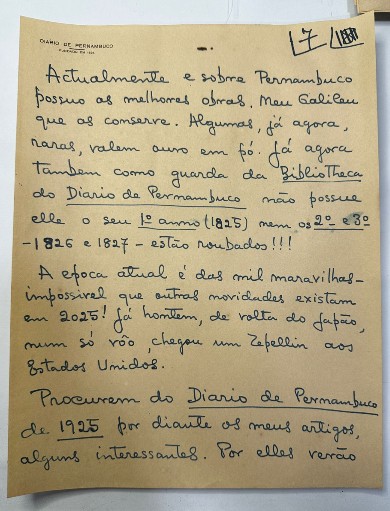 DIARIO DE PERNAMBUCO
7
Actualmente e sobre Pernambuco
possuo as melhores obras. Meu Galileu
que as conserve. Algumas, já agora,
raras, valem ouro em pó. Já agora
tambem como guarda da Bibliotheca
do Diario de Pernambuco não possue
elle o seu 1º anno (1825) nem os 2º e 3º
-1826 e 1827 - estão roubados!!!
A epoca atual é das mil maravilhas-
impossivel que outras novidades existam
em 2025! Já hontem, de volta do Japão,
num só vôo, chegou um Zepellin aos
Estados Unidos.
Procurem do Diario de Pernambuco
de 1925 por diante os meus artigos,
alguns interessantes. Por elles verão